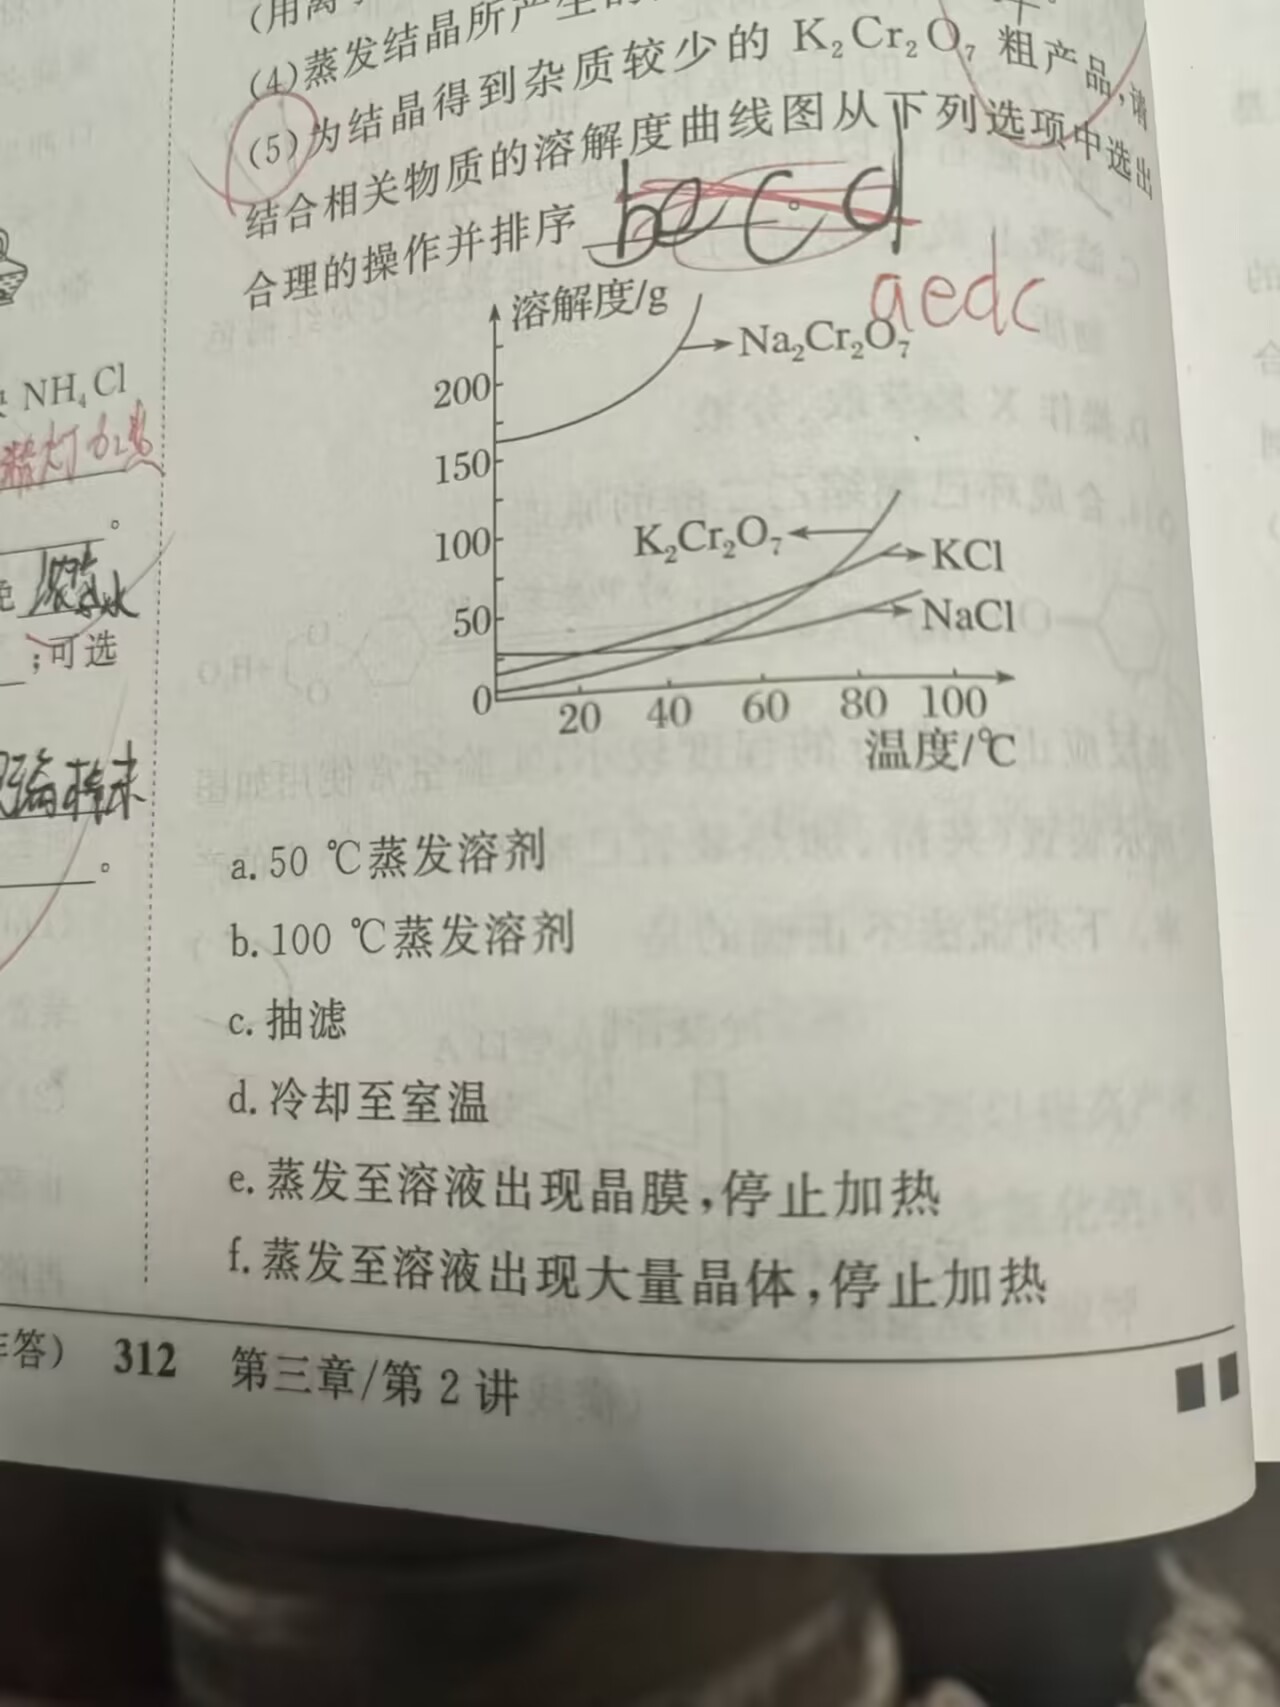 (用离
(4)蒸发结晶所产生的
(5)为结晶得到杂质较少的 K₂Cr₂O₇ 粗产品,请
结合相关物质的溶解度曲线图从下列选项中选出
合理的操作并排序 be c d 。
aedc
溶解度/g
Na₂Cr₂O₇
200
150
K₂Cr₂O₇
100
KCl
50
NaCl
0
20 40 60 80 100
温度/℃
a. 50 ℃蒸发溶剂
b. 100 ℃蒸发溶剂
c. 抽滤
d. 冷却至室温
e. 蒸发至溶液出现晶膜,停止加热
f. 蒸发至溶液出现大量晶体,停止加热
NH₄Cl
灯加热
。
;可选
。
答) 312 第三章/第 2 讲